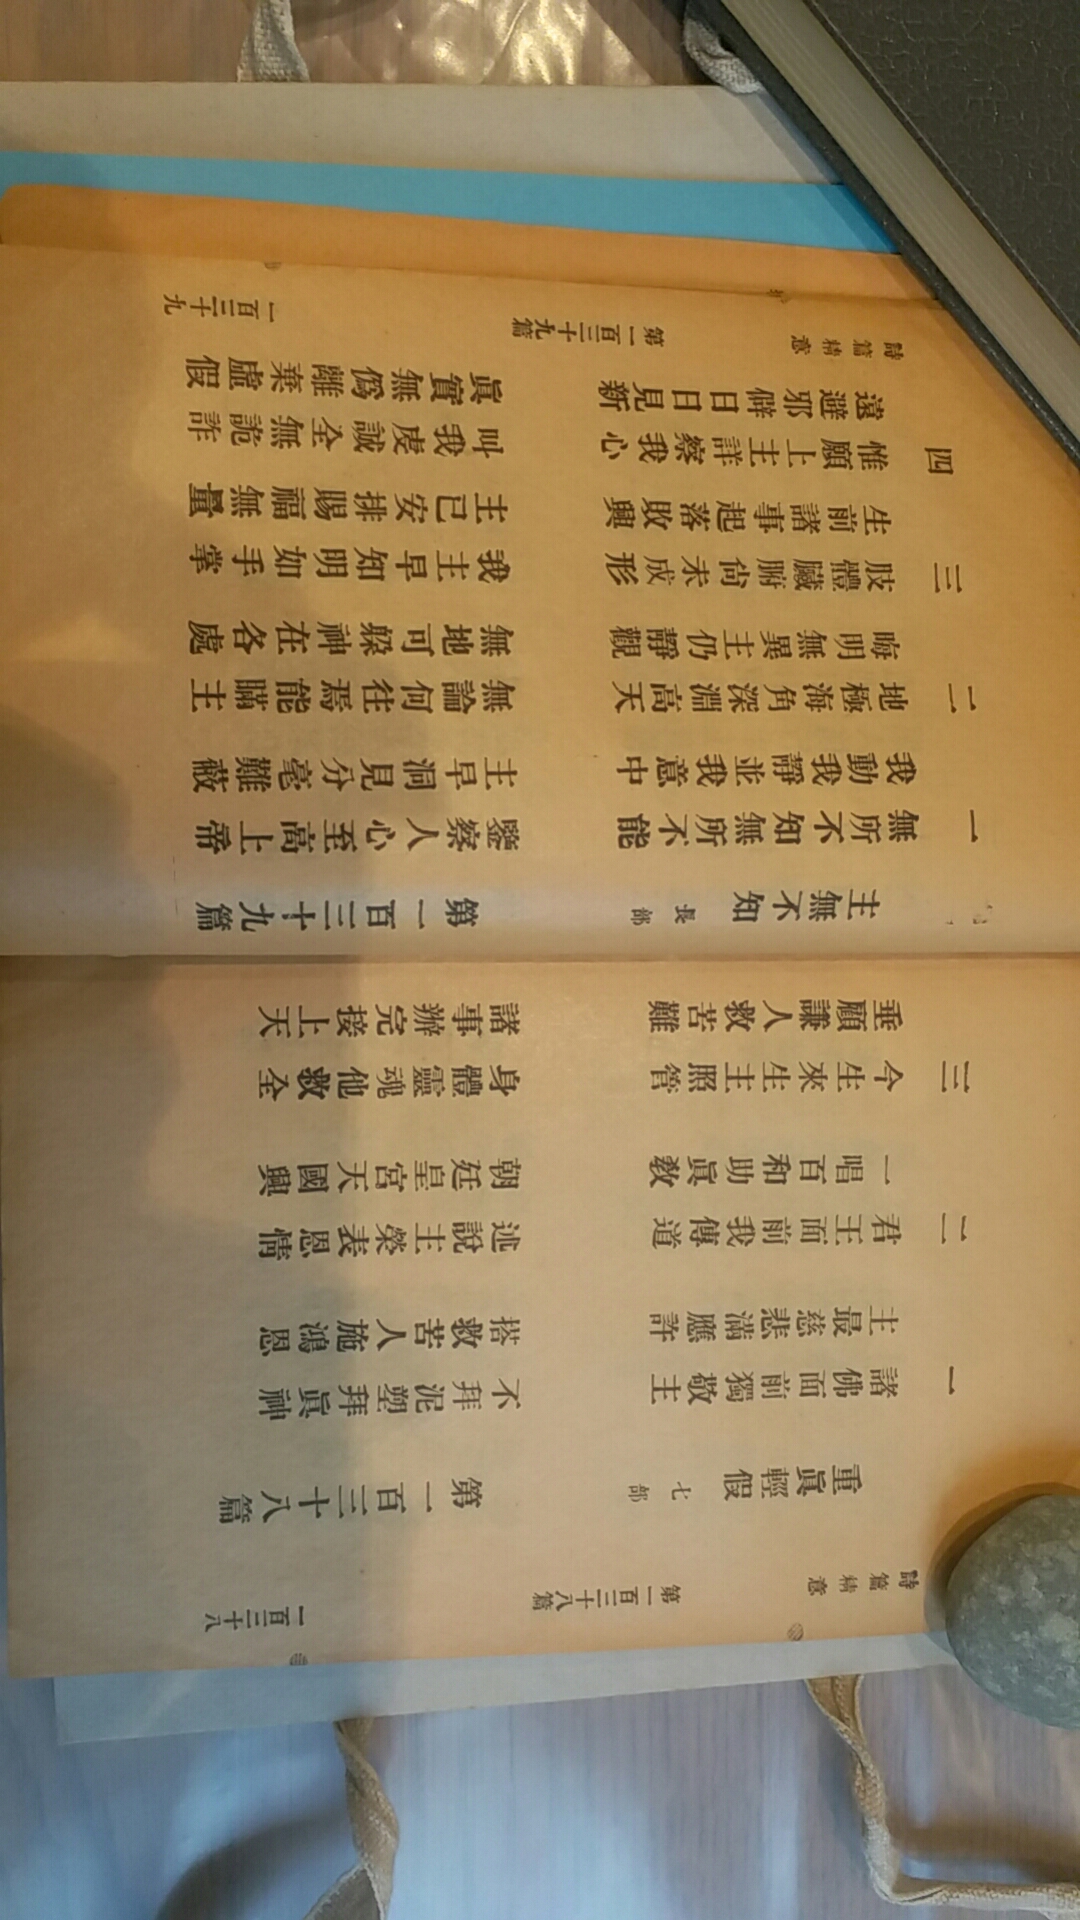 詩篇精意 第一百三十八篇 一百三十八
重眞輕假 七部 第一百三十八篇
一 諸佛面前獨敬主 不拜泥塑拜眞神
主最慈悲滿應許 搭救苦人施鴻恩
二 君王面前我傳道 述說主榮表恩情
一唱百和助眞敎 朝廷皇宮天國興
三 今生來生主照管 身體靈魂他救全
垂顧謙人救苦難 諸事辦完接上天
主無不知 長部 第一百三十九篇
一 無所不知無所不能 鑒察人心至高上帝
我動我靜並我意中 主早洞見分毫難蔽
二 地極海角深淵高天 無論何往焉能瞞主
晦明無異主仍靜觀 無地可躱神在各處
三 肢體臟腑尚未成形 我主早知明如手掌
生前諸事起落敗興 主已安排賜福無量
四 惟願上主詳察我心 叫我虔誠全無詭詐
遠避邪僻日日見新 眞實無僞離棄虛假
詩篇精意 第一百三十九篇 一百三十九